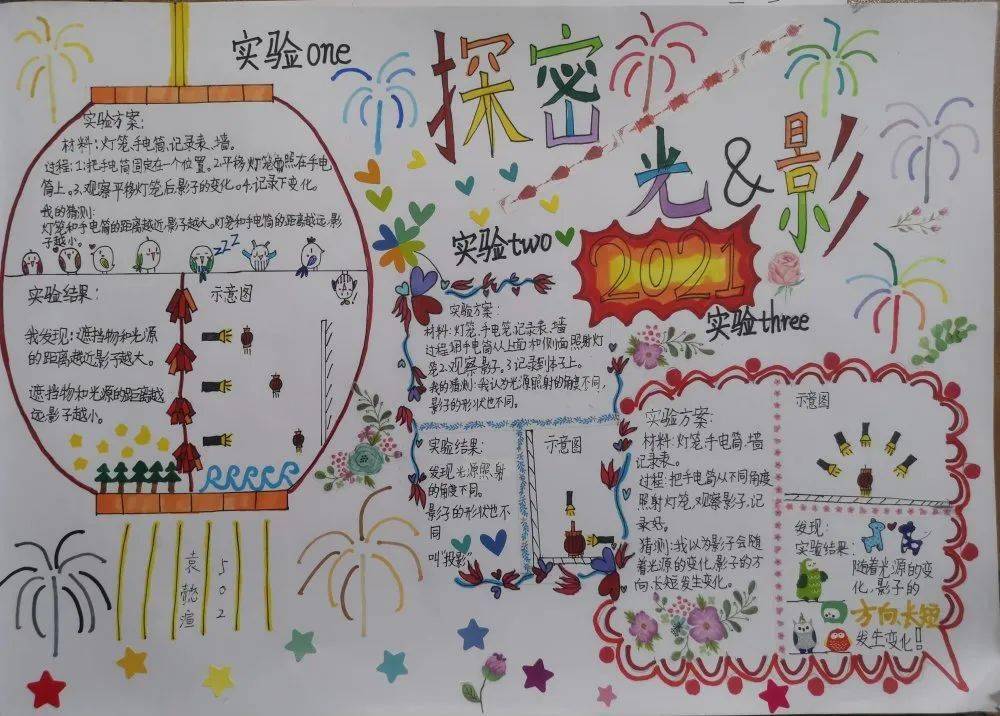 探密
光&影
2021
实验one
实验方案:
材料:灯笼、手电筒、记录表、墙。
过程:1.把手电筒固定在一个位置。2.平移灯笼需照在手电
筒上。3.观察平移灯笼后影子的变化。4.记录下变化。
我的猜测:
灯笼和手电筒的距离越近,影子越大。灯笼和手电筒的距离越远,影
子越小。
zzZ
实验结果:
我发现:遮挡物和光源
的距离越近影子越大。
遮挡物和光源的距离越
远,影子越小。
示意图
502
实验two
实验方案:
材料:灯笼、手电筒、记录表、墙
过程:1.把手电筒从上面和侧面照射灯
笼2.观察影子。3.记录到本子上。
我的猜测:我认为光源照射的角度不同,
影子的形状也不同。
实验结果:
发现光源照射
的角度不同。
影子的形状也不
同
叫"投影"
示意图
实验three
实验方案:
材料:灯笼、手电筒、墙
记录表。
过程:把手电筒从不同角度
照射灯笼,观察影子,记
录好。
猜测:我以为影子会随
着光源的变化,影子的方
向、长短发生变化。
示意图
发现:
实验结果:
随着光源的变
化,影子的
方向、长短
发生变化!!